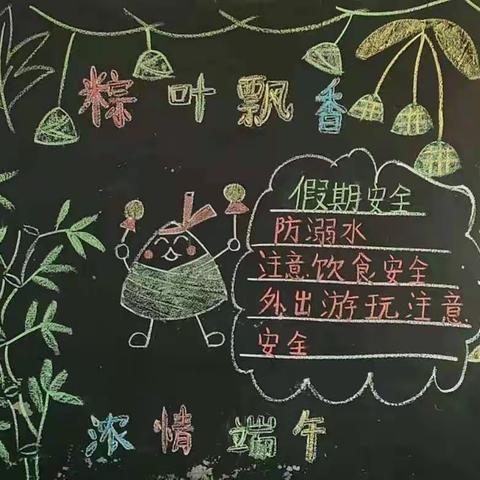 粽叶飘香
假期安全
防溺水
注意饮食安全
外出游玩注意
安全
浓情端午